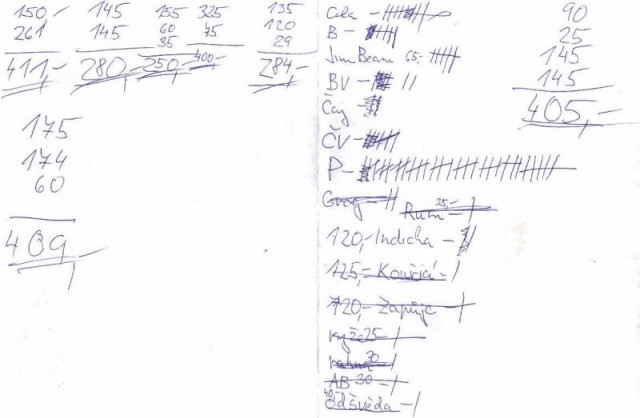 150,- 145 155 325 135
261 145 60 75 120
35 29
411,- 280,- 250,- 400,- 284,-
175
174
60
409,-
Cola -
B -
Jim Beam 65,-
BV -
Čaj -
ČV -
P -
Grog -
Rum 35,- -
120,- Indicka -
125,-
120,-
25 -
30 -
AB 30 -
40
90
25
145
145
405,-